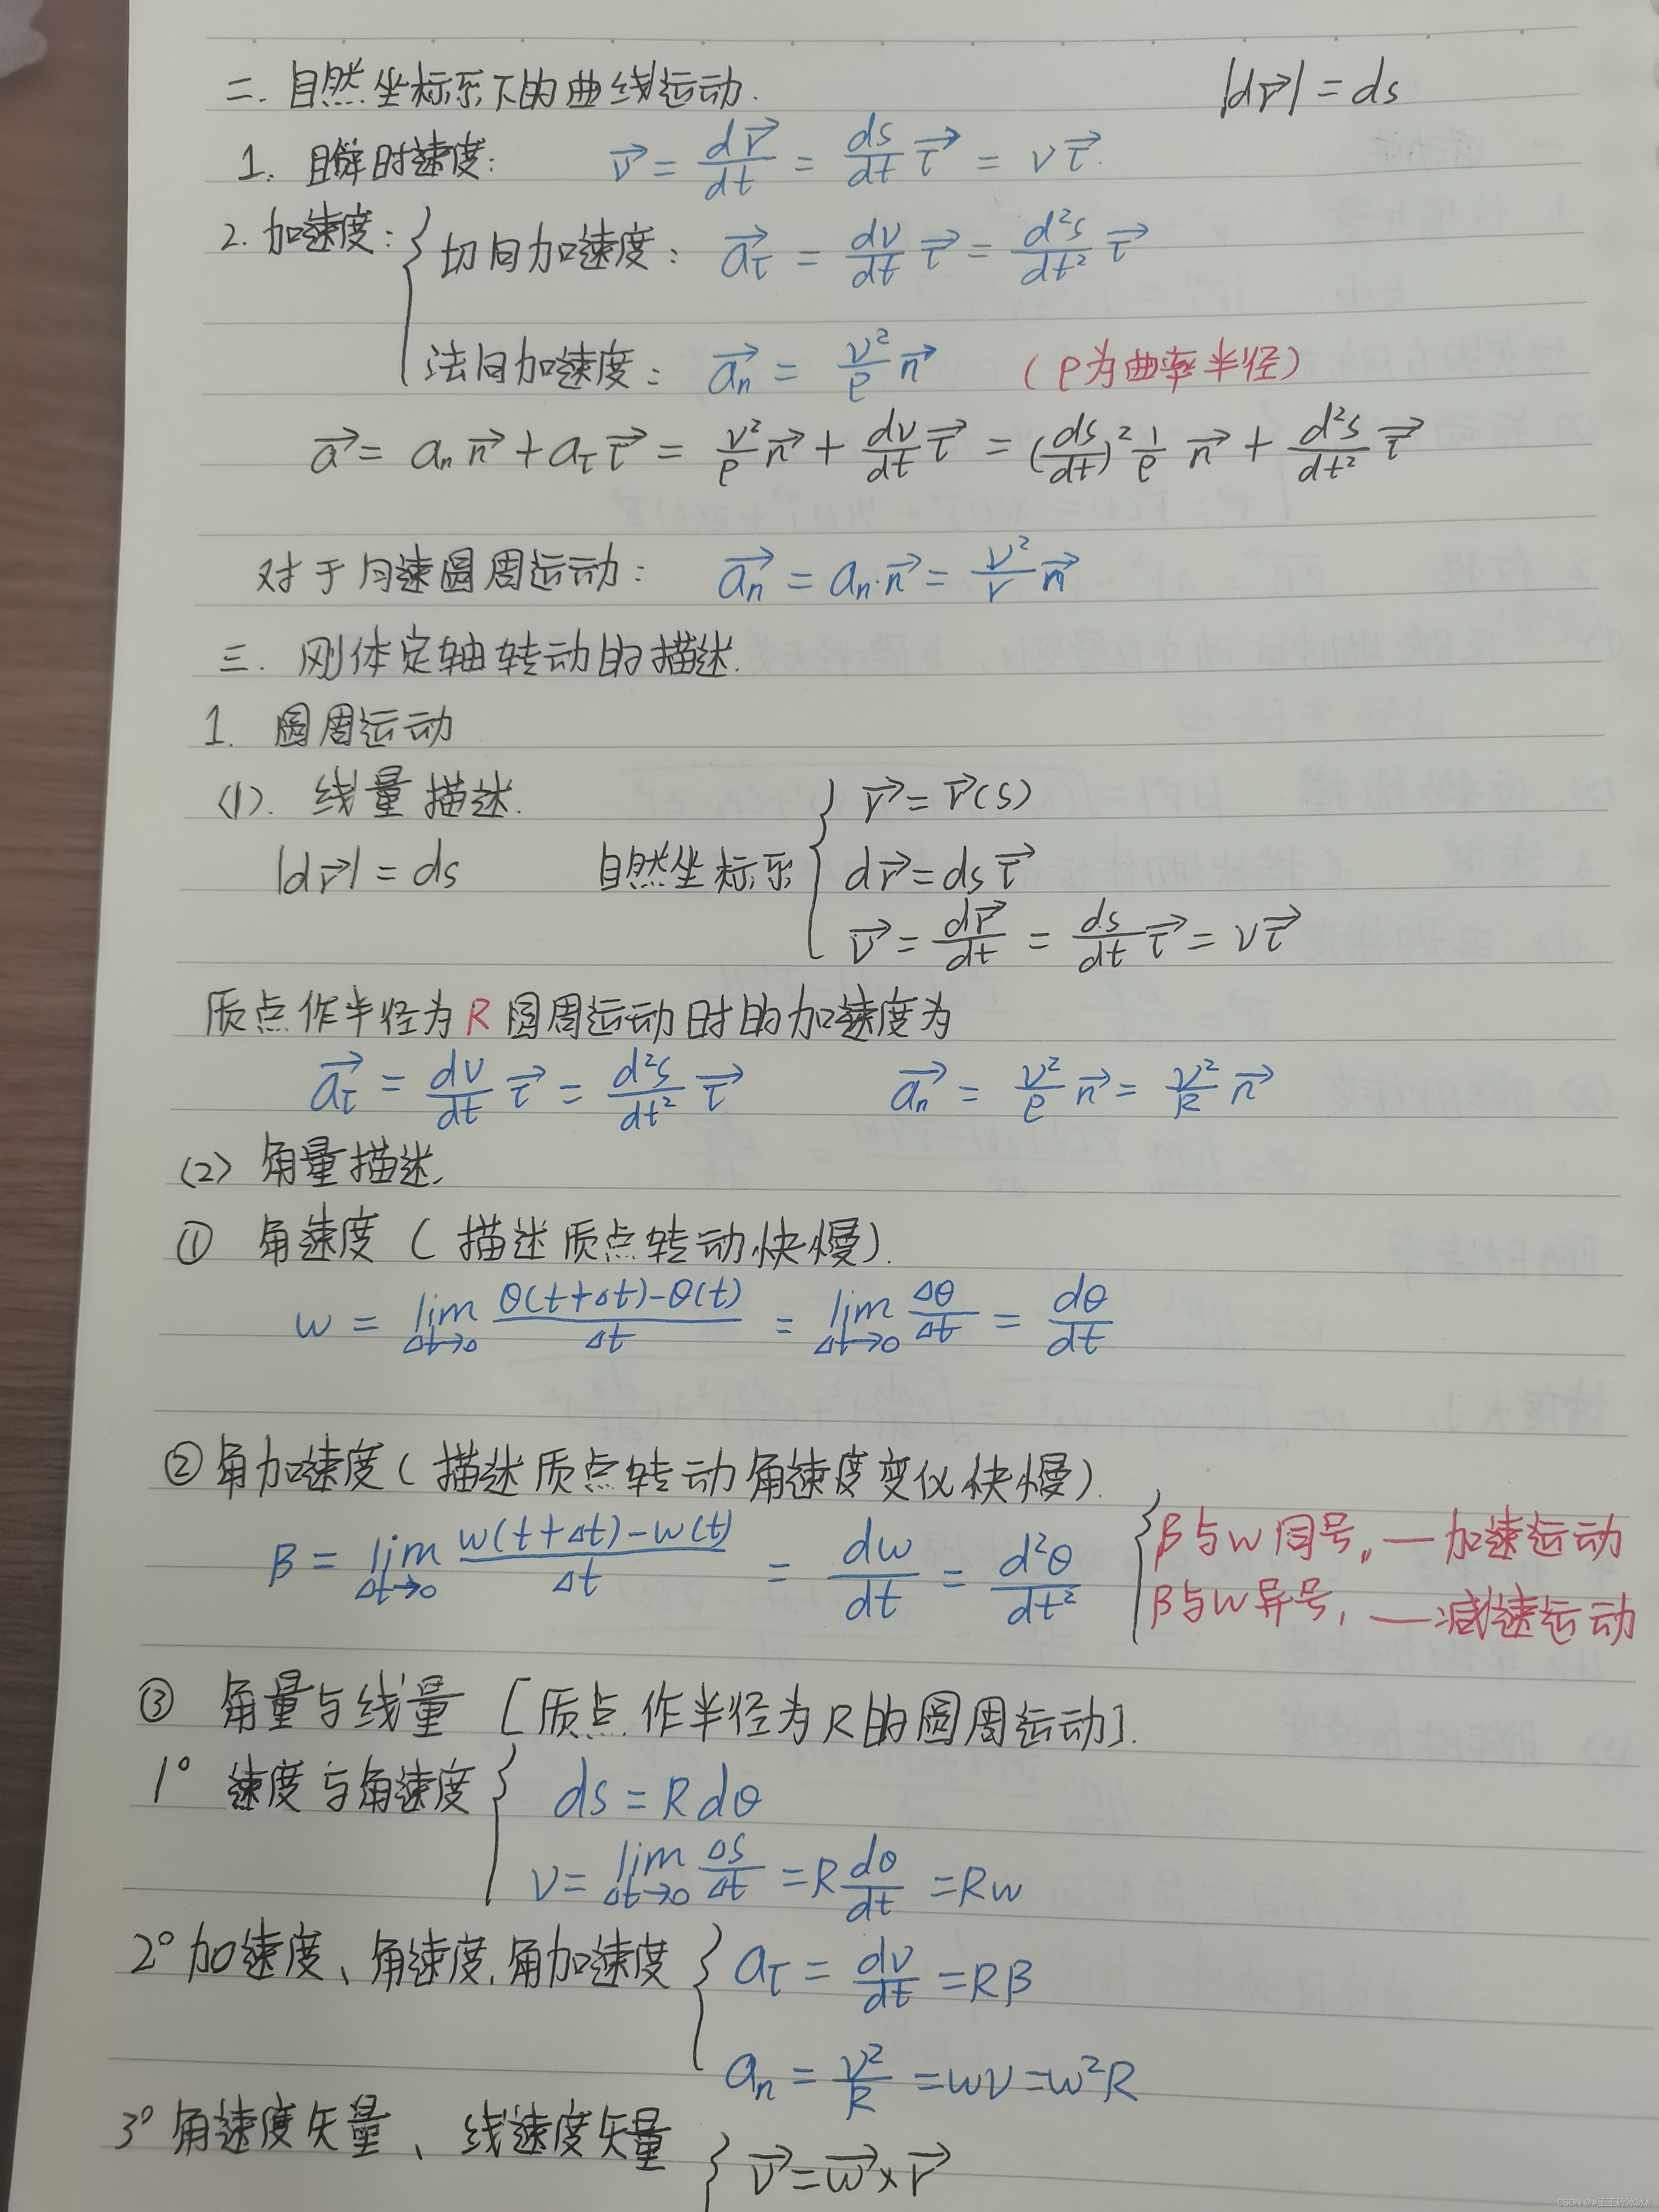 二. 自然坐标系下的曲线运动. |d\vec{r}| = ds
1. 瞬时速度: \vec{v} = \frac{d\vec{r}}{dt} = \frac{ds}{dt}\vec{τ} = v\vec{τ}.
2. 加速度: { 切向加速度: \vec{a_τ} = \frac{dv}{dt}\vec{τ} = \frac{d²s}{dt²}\vec{τ}
法向加速度: \vec{a_n} = \frac{v²}{ρ}\vec{n} (ρ为曲率半径)
\vec{a} = a_n\vec{n} + a_τ\vec{τ} = \frac{v²}{ρ}\vec{n} + \frac{dv}{dt}\vec{τ} = (\frac{ds}{dt})²\frac{1}{ρ}\vec{n} + \frac{d²s}{dt²}\vec{τ}
对于匀速圆周运动: \vec{a_n} = a_n·\vec{n} = \frac{v²}{r}\vec{n}
三. 刚体定轴转动的描述.
1. 圆周运动
(1). 线量描述. { \vec{r} = \vec{r}(s)
|d\vec{r}| = ds 自然坐标系 d\vec{r} = ds\vec{τ}
\vec{v} = \frac{d\vec{r}}{dt} = \frac{ds}{dt}\vec{τ} = v\vec{τ}
质点作半径为R圆周运动时的加速度为
\vec{a_τ} = \frac{dv}{dt}\vec{τ} = \frac{d²s}{dt²}\vec{τ} \vec{a_n} = \frac{v²}{ρ}\vec{n} = \frac{v²}{R}\vec{n}
(2) 角量描述.
① 角速度 (描述质点转动快慢).
w = \lim_{Δt→0}\frac{θ(t+Δt)-θ(t)}{Δt} = \lim_{Δt→0}\frac{Δθ}{Δt} = \frac{dθ}{dt}
② 角加速度 (描述质点转动角速度变化快慢).
β = \lim_{Δt→0}\frac{w(t+Δt)-w(t)}{Δt} = \frac{dw}{dt} = \frac{d²θ}{dt²} { β与w同号, —加速运动
β与w异号, —减速运动
③ 角量与线量 [质点作半径为R的圆周运动].
1° 速度与角速度 { ds = R dθ
v = \lim_{Δt→0}\frac{Δs}{Δt} = R\frac{dθ}{dt} = Rw
2° 加速度、角速度、角加速度 { a_τ = \frac{dv}{dt} = Rβ
a_n = \frac{v²}{R} = wv = w²R
3° 角速度矢量、线速度矢量 { \vec{v} = \vec{w}×\vec{r}